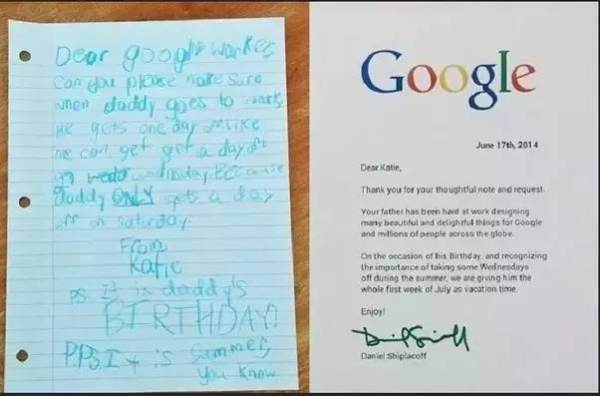 Dear google worker,
Can you please make sure
when daddy goes to work,
he gets one day off. Like
he can get get a day off
on
wednsday. BECause
daddy ONLY gets a day
off on saturday.
From,
Katie
P.S. It is daddy's
BIRTHDAY!
P.P.S. It is summer,
you know.
Google
June 17th, 2014
Dear Katie,
Thank you for your thoughtful note and request.
Your father has been hard at work designing
many beautiful and delightful things for Google
and millions of people across the globe.
On the occasion of his Birthday, and recognizing
the importance of taking some Wednesdays
off during the summer, we are giving him the
whole first week of July as vacation time.
Enjoy!
Daniel Shiplacoff